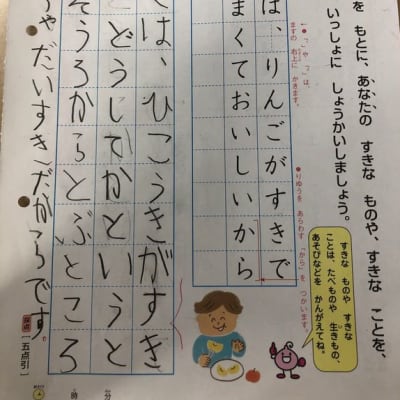 を もとに、あなたの すきな ものや、すきな ことを、
いっしょに しょうかいしましょう。
すきな ものや すきな
ことは、たべものや 生きもの、
あそびなどを かんがえてね。
●「、」や「。」は、
ますの 右上に かきます。
●りゆうを あらわす 「から」を つかいます。
は、りんごがすきで
まくておいしいから
は、ひこうきがすき
どうしてかというと
そうろからとぶところ
ちゃだいすきだからです。
採点
五点引
時
分